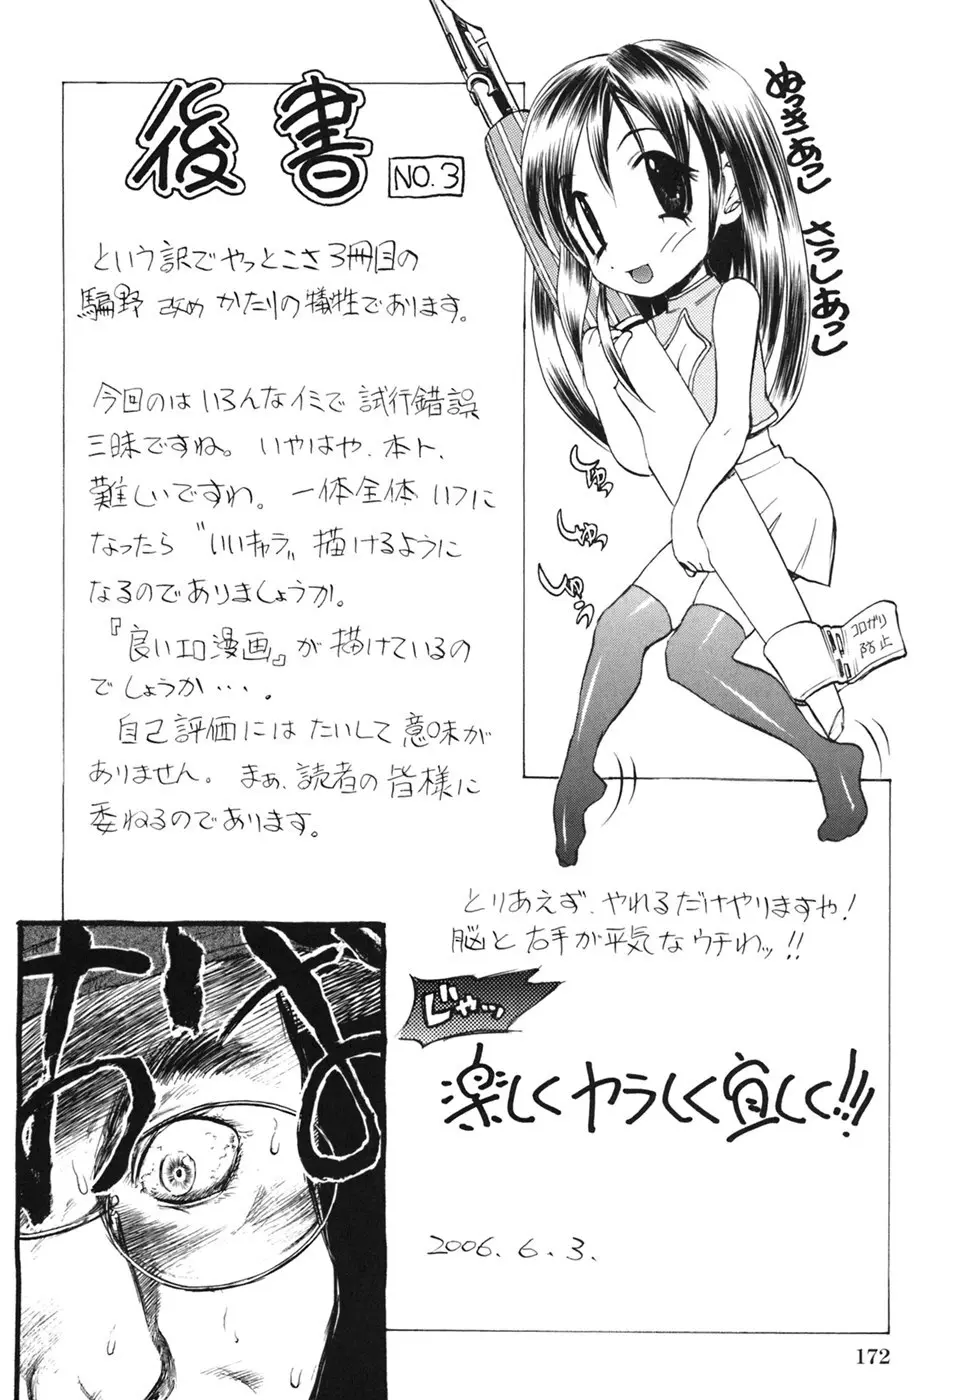 後書
NO.3
という訳でやっとこさ3冊目の
騙野 改め かたりの犠牲であります。
今回のは いろんなイミで 試行錯誤
三昧ですね。 いやはや、本ト、
難しいですわ。 一体全体 いつに
なったら〝いいキャラ〟描けるように
なるのでありましょうか。
『良いエロ漫画』が描けているの
でしょうか・・・。
自己評価には たいして意味が
ありません。 まぁ、読者の皆様に
委ねるのであります。
ぬっきあっこ
さっしあっし
じゅっ
じゅっ
じゅう
コロガリ
防止
とりあえず、やれるだけやりますや!
脳と右手が平気なウチわッ!!
じゃっ
楽しくヤラしく宜しく!!!
2006.6.3.
172